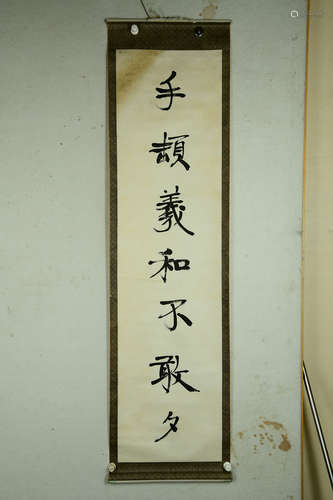 手頡羲和不敢夕